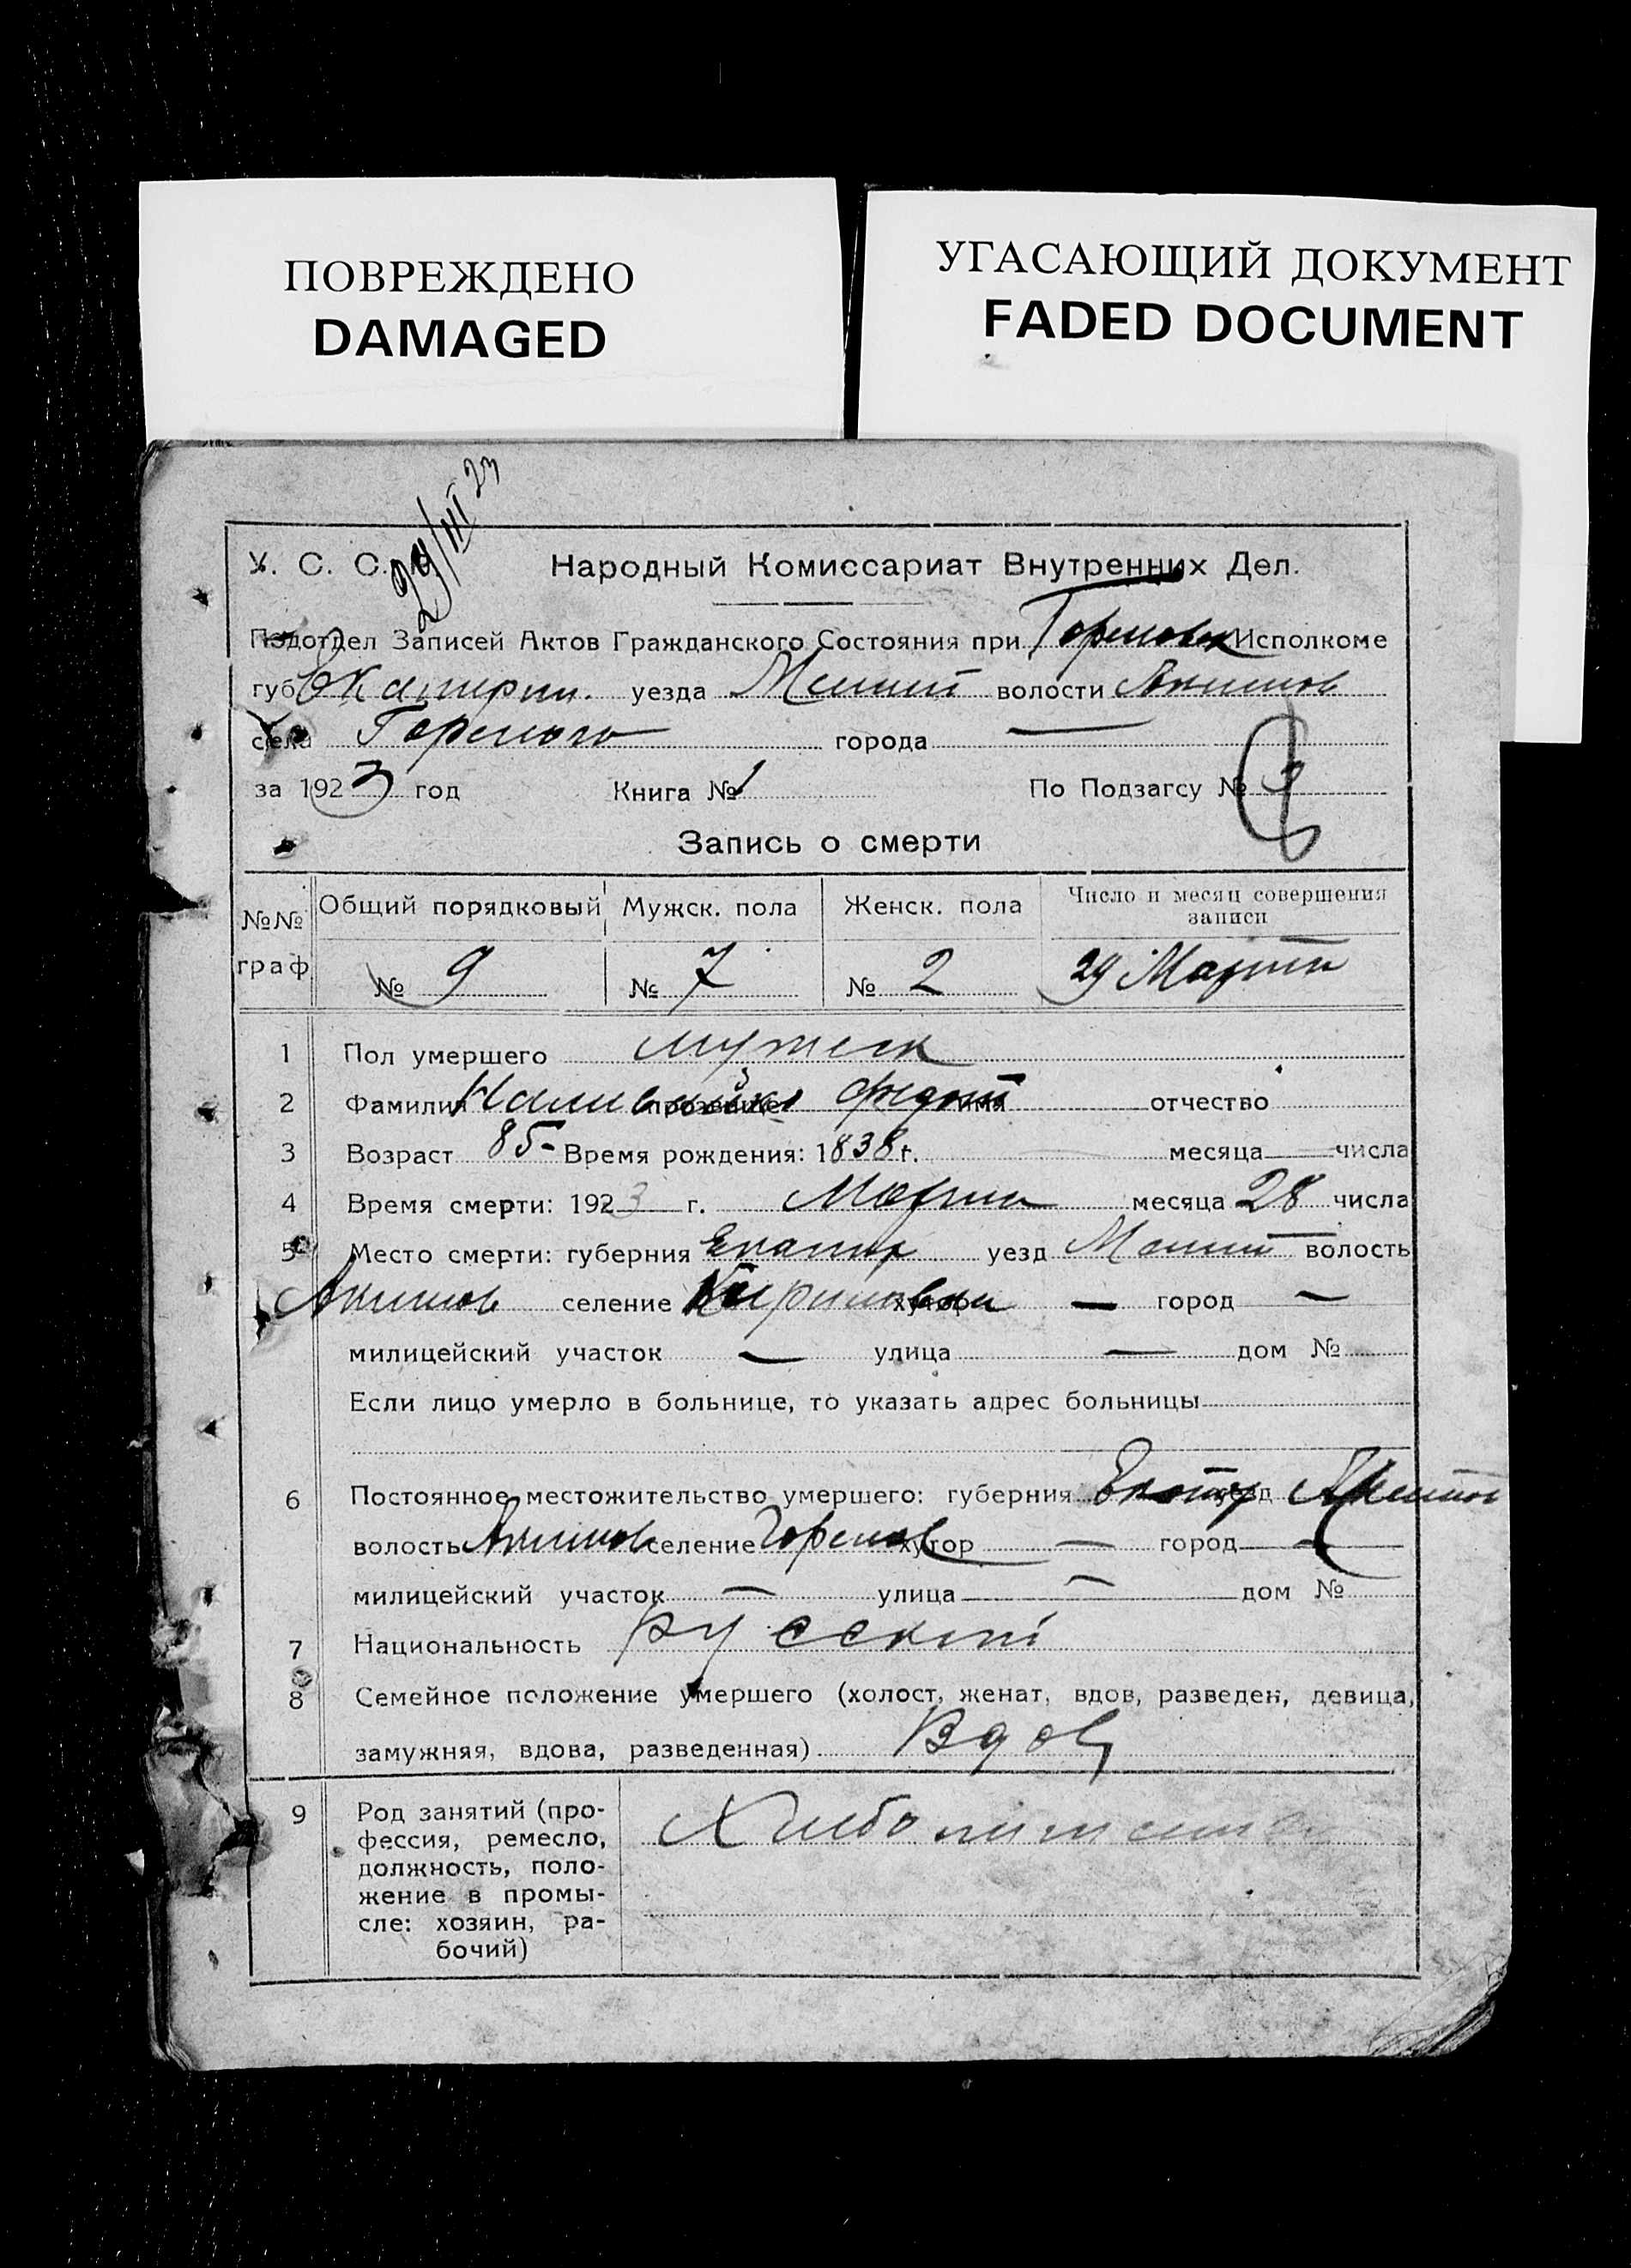 ПОВРЕЖДЕНО
DAMAGED
УГАСАЮЩИЙ ДОКУМЕНТ
FADED DOCUMENT
29/III 23
У. С. С. Народный Комиссариат Внутренних Дел.
Подотдел Записей Актов Гражданского Состояния при Исполкоме
губ Екатерин. уезда волости Акимов
села Горелого города —
за 1923 год Книга № 1 По Подзагсу №
Запись о смерти
№№ граф. Общий порядковый Мужск. пола Женск. пола Число и месяц совершения записи
№ 9 № 7 № 2 29 Марта
1 Пол умершего мужеск
2 Фамилия прозвище имя отчество
3 Возраст 85 Время рождения: 1838 г. месяца — числа
4 Время смерти: 1923 г. Марта месяца 28 числа
5 Место смерти: губерния Екатер уезд волость
Акимов селение хутор — город —
милицейский участок — улица — дом №
Если лицо умерло в больнице, то указать адрес больницы
6 Постоянное местожительство умершего: губерния уезд
волость Акимов селение Горелов хутор — город —
милицейский участок — улица — дом №
7 Национальность русский
8 Семейное положение умершего (холост, женат, вдов, разведен, девица,
замужняя, вдова, разведенная) Вдов
9 Род занятий (про-
фессия, ремесло,
должность, поло-
жение в промы-
сле: хозяин, ра-
бочий)